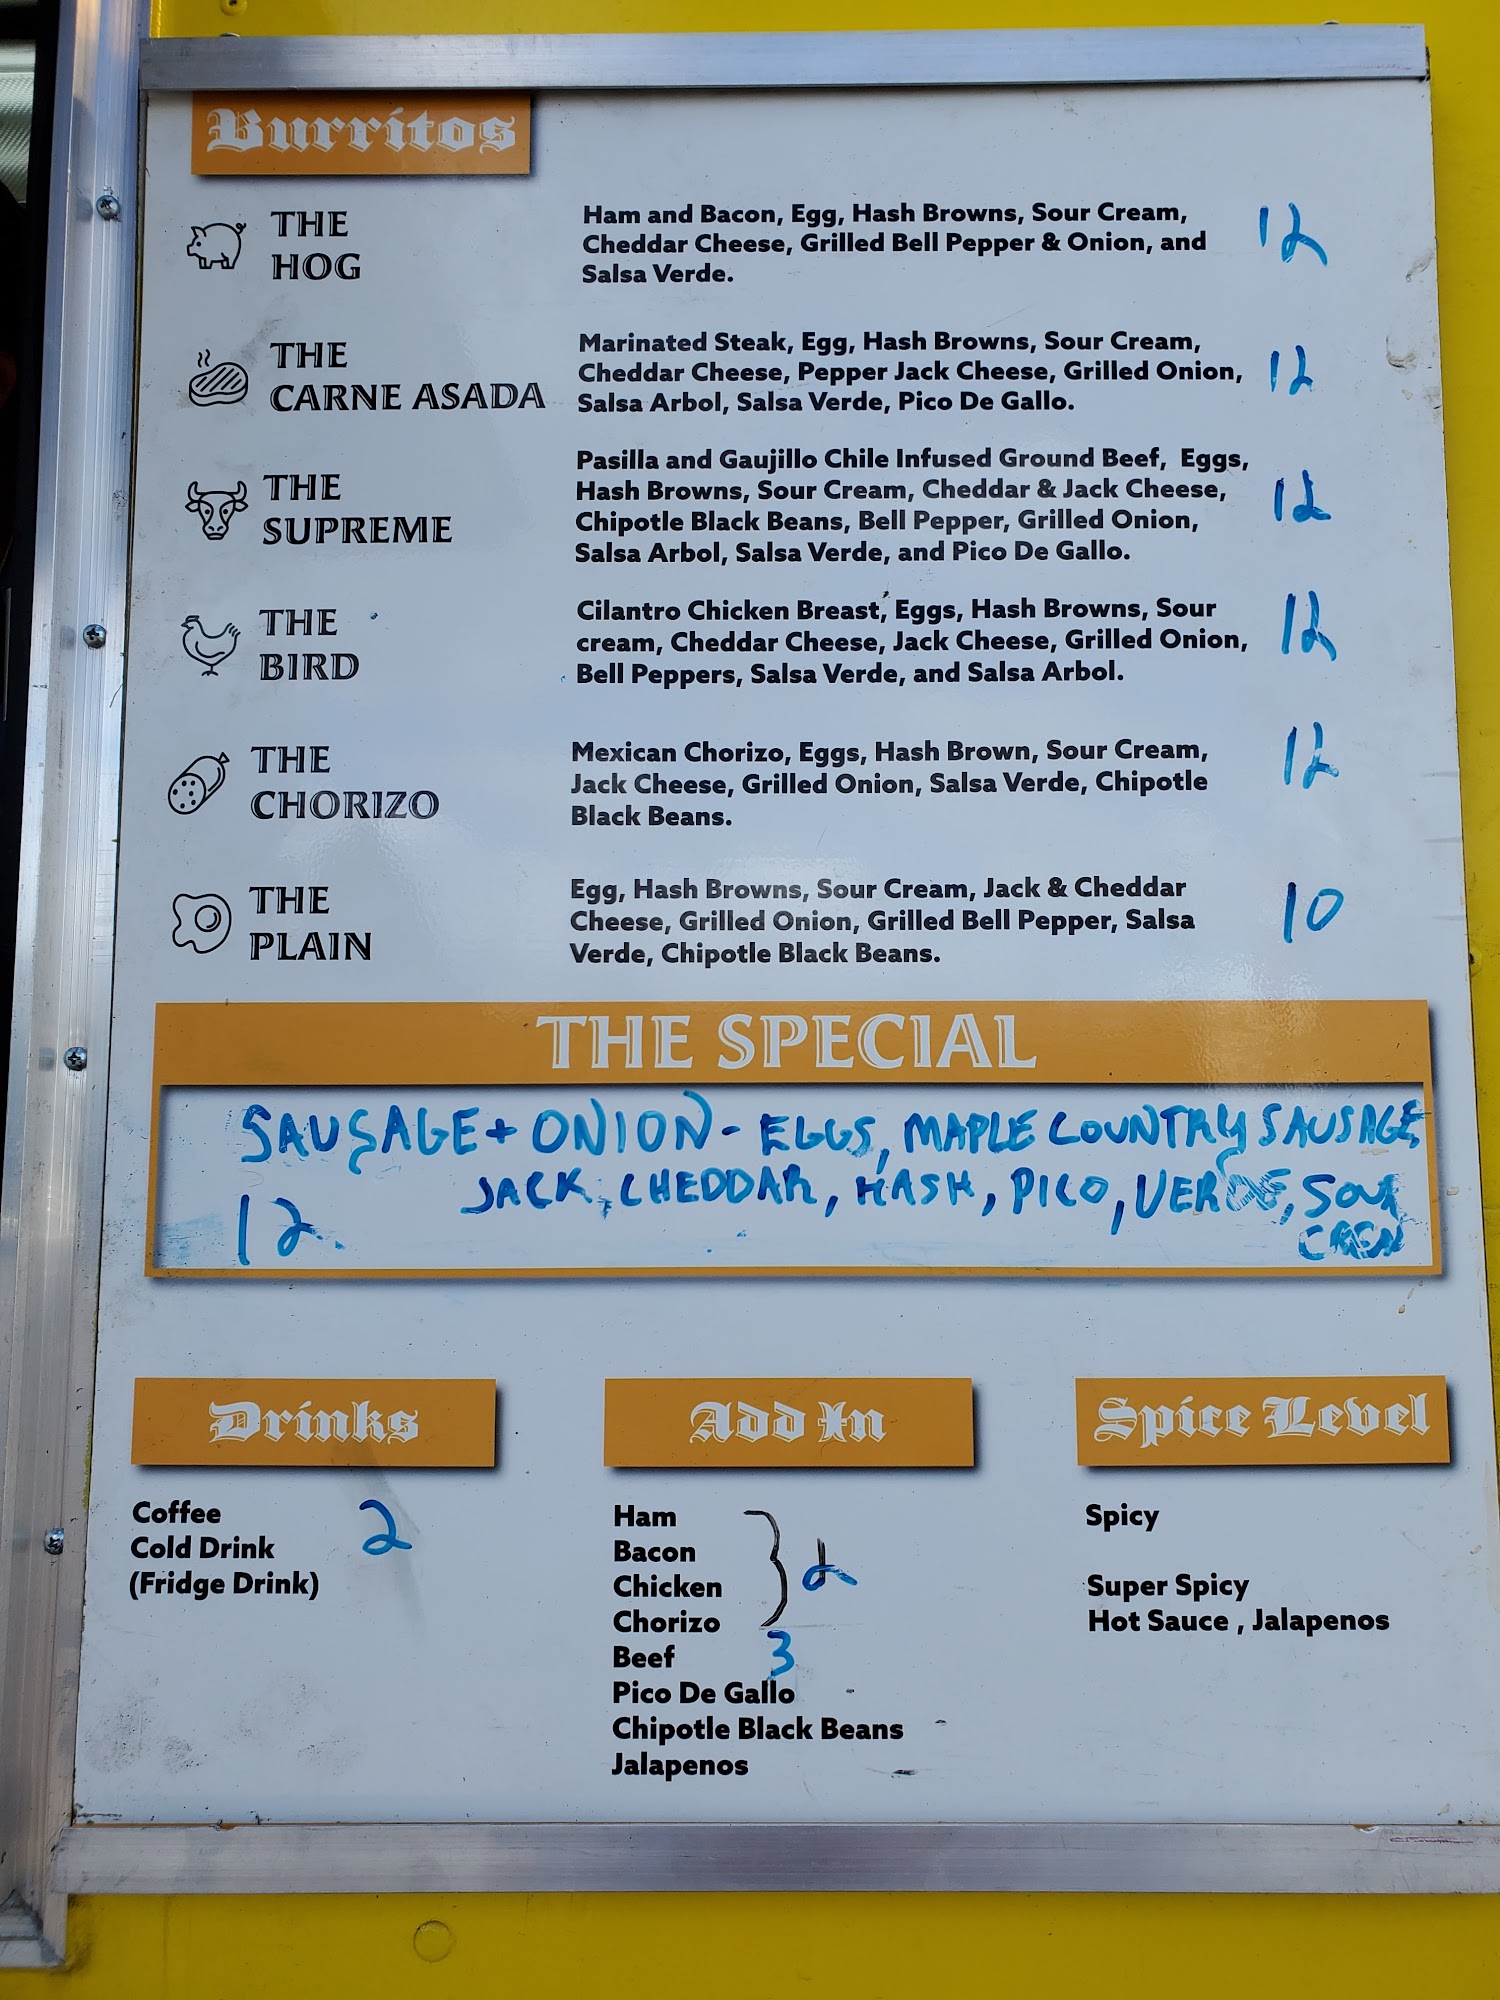 Burritos
THE
HOG
Ham and Bacon, Egg, Hash Browns, Sour Cream,
Cheddar Cheese, Grilled Bell Pepper & Onion, and
Salsa Verde.
12
THE
CARNE ASADA
Marinated Steak, Egg, Hash Browns, Sour Cream,
Cheddar Cheese, Pepper Jack Cheese, Grilled Onion,
Salsa Arbol, Salsa Verde, Pico De Gallo.
12
THE
SUPREME
Pasilla and Gaujillo Chile Infused Ground Beef, Eggs,
Hash Browns, Sour Cream, Cheddar & Jack Cheese,
Chipotle Black Beans, Bell Pepper, Grilled Onion,
Salsa Arbol, Salsa Verde, and Pico De Gallo.
12
THE
BIRD
Cilantro Chicken Breast, Eggs, Hash Browns, Sour
cream, Cheddar Cheese, Jack Cheese, Grilled Onion,
Bell Peppers, Salsa Verde, and Salsa Arbol.
12
THE
CHORIZO
Mexican Chorizo, Eggs, Hash Brown, Sour Cream,
Jack Cheese, Grilled Onion, Salsa Verde, Chipotle
Black Beans.
12
THE
PLAIN
Egg, Hash Browns, Sour Cream, Jack & Cheddar
Cheese, Grilled Onion, Grilled Bell Pepper, Salsa
Verde, Chipotle Black Beans.
10
THE SPECIAL
SAUSAGE + ONION - EGGS, MAPLE COUNTRY SAUSAGE
JACK, CHEDDAR, HASH, PICO, VERDE, SOUR
12
Drinks
Coffee
Cold Drink
(Fridge Drink)
2
Add In
Ham
Bacon
Chicken
Chorizo
2
Beef 3
Pico De Gallo
Chipotle Black Beans
Jalapenos
Spice Level
Spicy
Super Spicy
Hot Sauce , Jalapenos